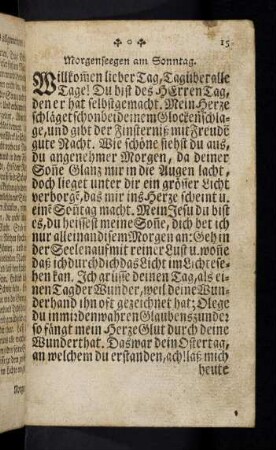 15
Morgenseegen am Sonntag.
Willkom̄en lieber Tag, Tag über alle
Tage! Du bist des HErren Tag,
den er hat selbst gemacht. Mein Herze
schläget schon bei deinem Glockenschla-
ge, und gibt der Finsterniß mit Freudē
gute Nacht. Wie schöne siehst du aus,
du angenehmer Morgen, da deiner
Soñe Glanz mir in die Augen lacht,
doch lieget unter dir ein grösser Licht
verborgē, das mir ins Herze scheint u.
einē Sontag macht. Mein Jesu du bist
es, du heissest meine Soñe, dich bet ich
nur allein an diesem Morgen an: Geh in
der Seelen auf mit reiner Lust u. woñe
daß ich durch dich das Licht im Lichte se-
hen kan. Ich grüsse deinen Tag, als ei-
nen Tag der Wunder, weil deine Wun-
derhand ihn oft gezeichnet hat; O lege
du in mir den wahren Glaubenszunder
so fängt mein Herze Glut durch deine
Wunderthat. Das war dein Ostertag,
an welchem du erstanden, ach! laß mich
heute